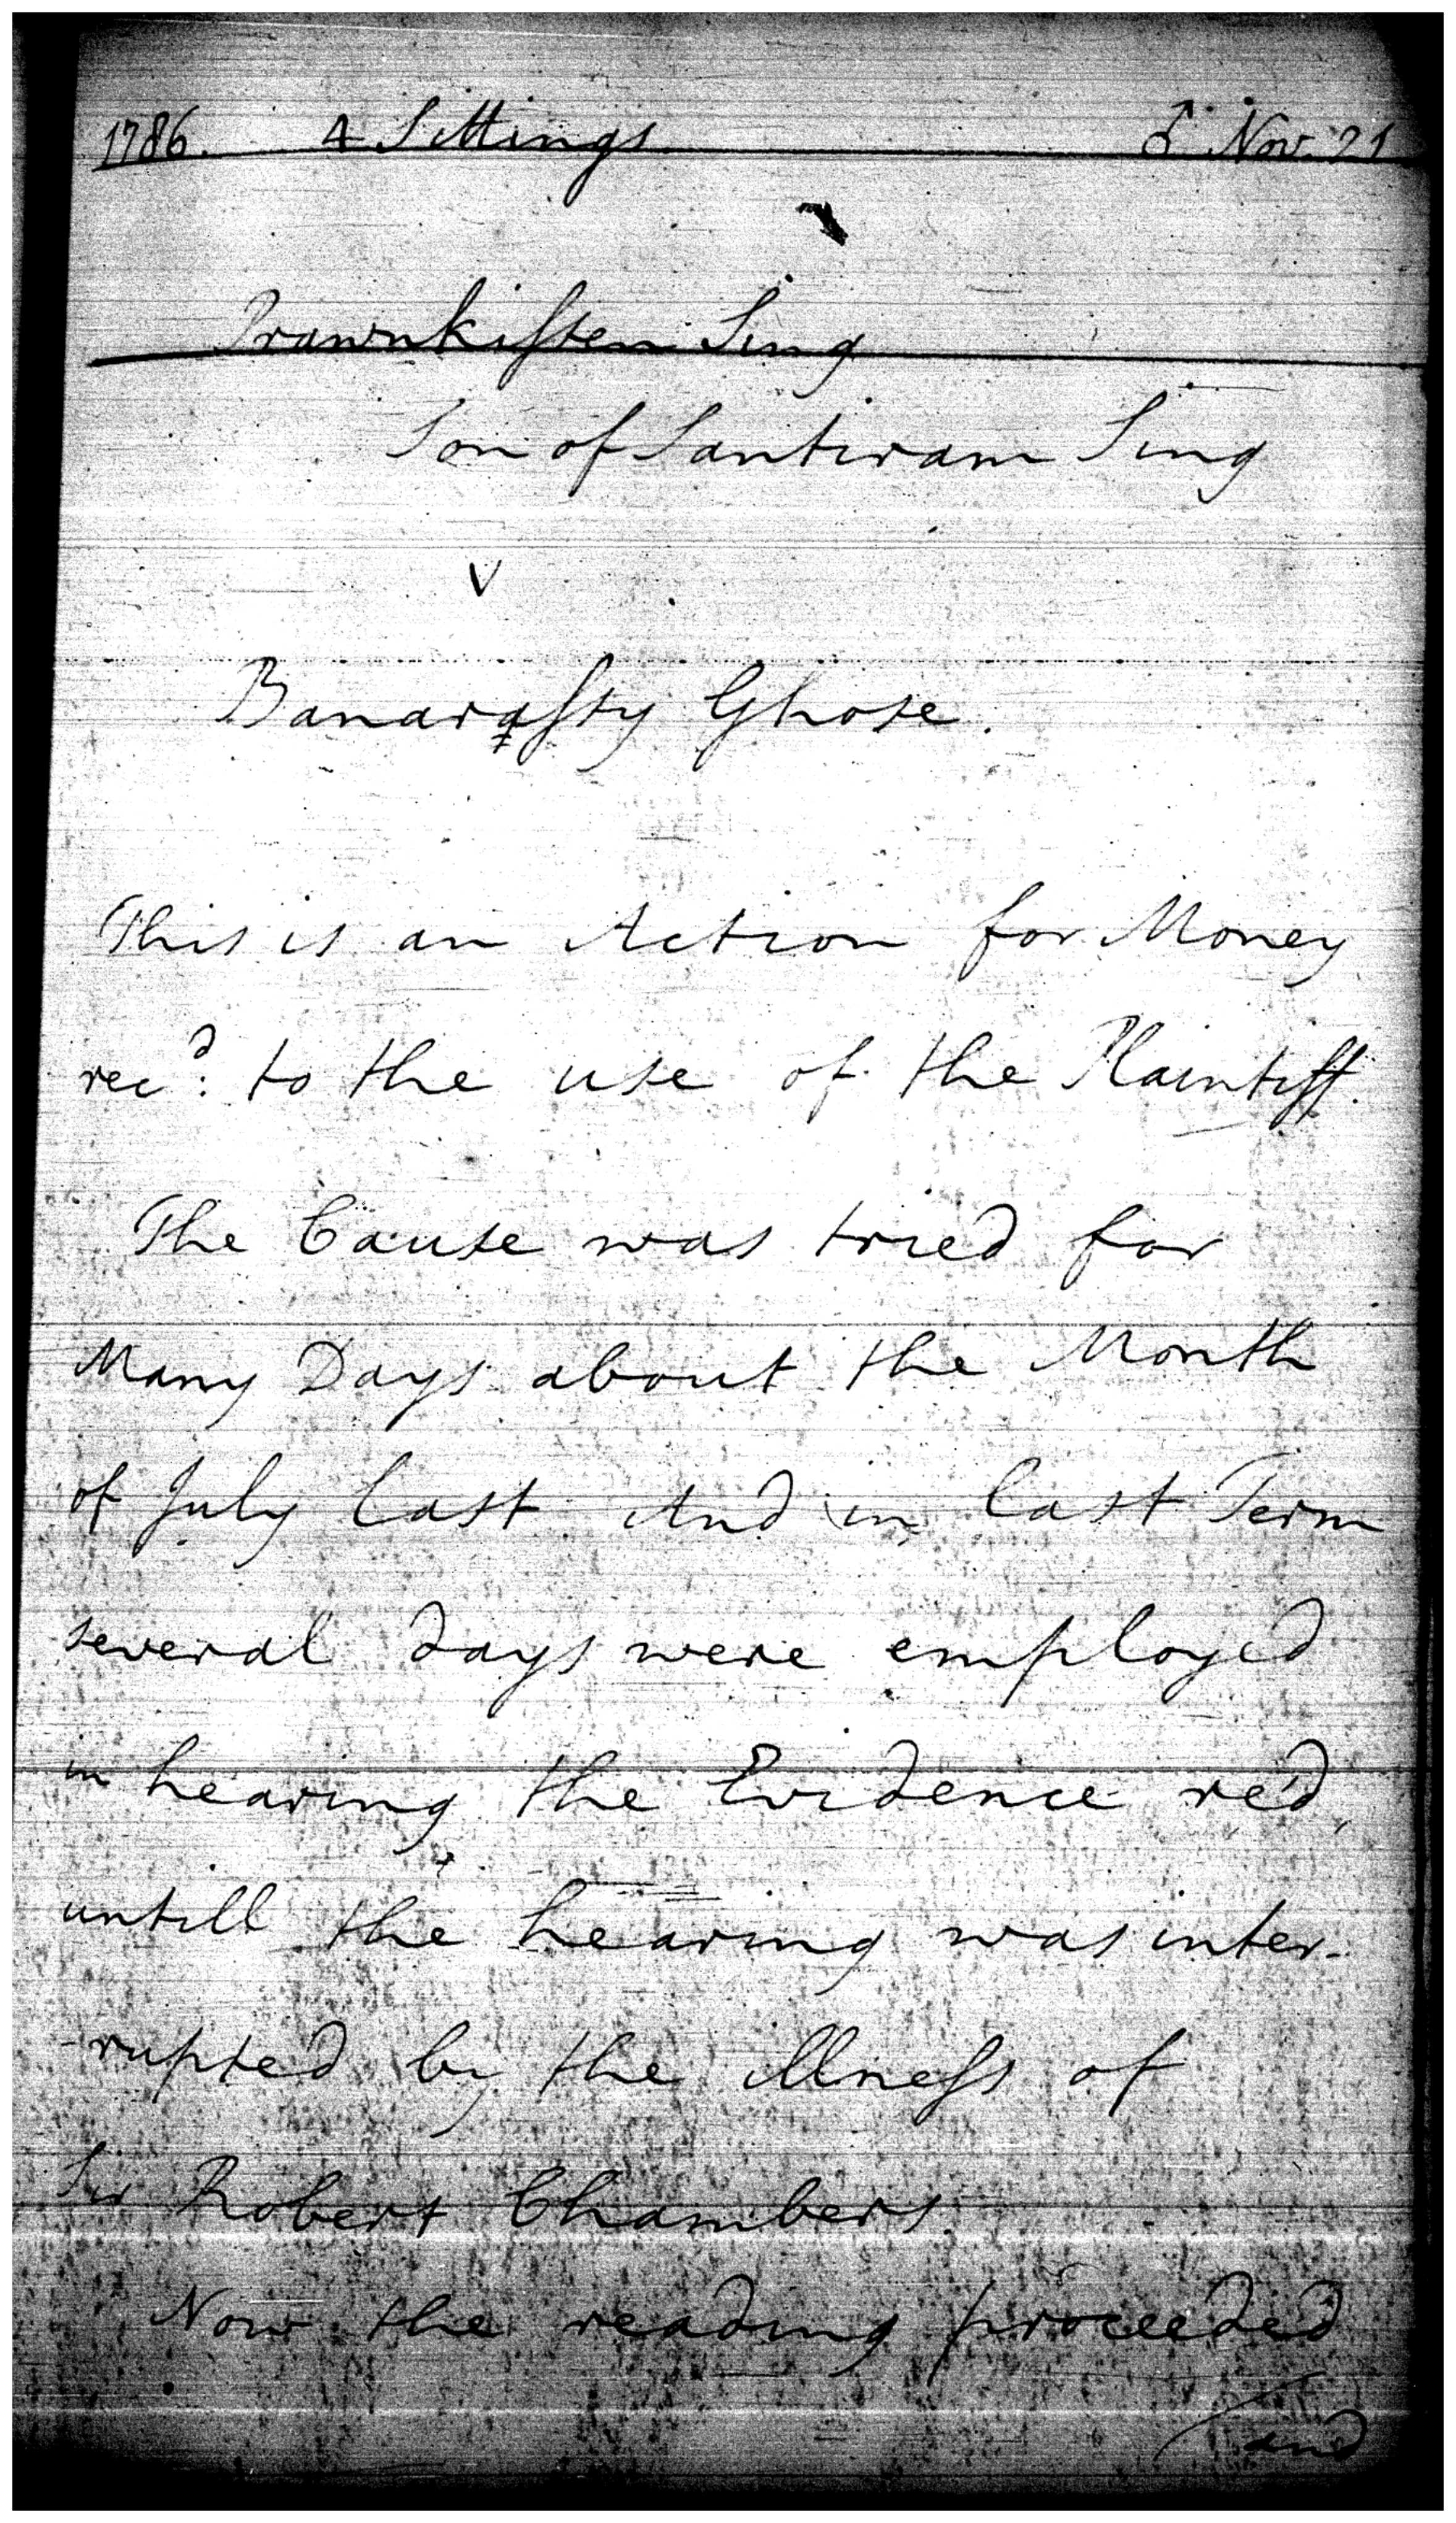 1786. 4 Sittings ♂ Nov. 21
Prawnkissen Sing
Son of Santiram Sing
v
Banarassy Ghose.
This is an Action for Money
recd. to the use of the Plaintiff.
The Cause was tried for
Many Days about the Month
of July last And in last Term
several days were employed
in hearing the Evidence re'd,
untill the hearing was inter-
-rupted by the illness of
Sir Robert Chambers.
Now the reading proceeded
and